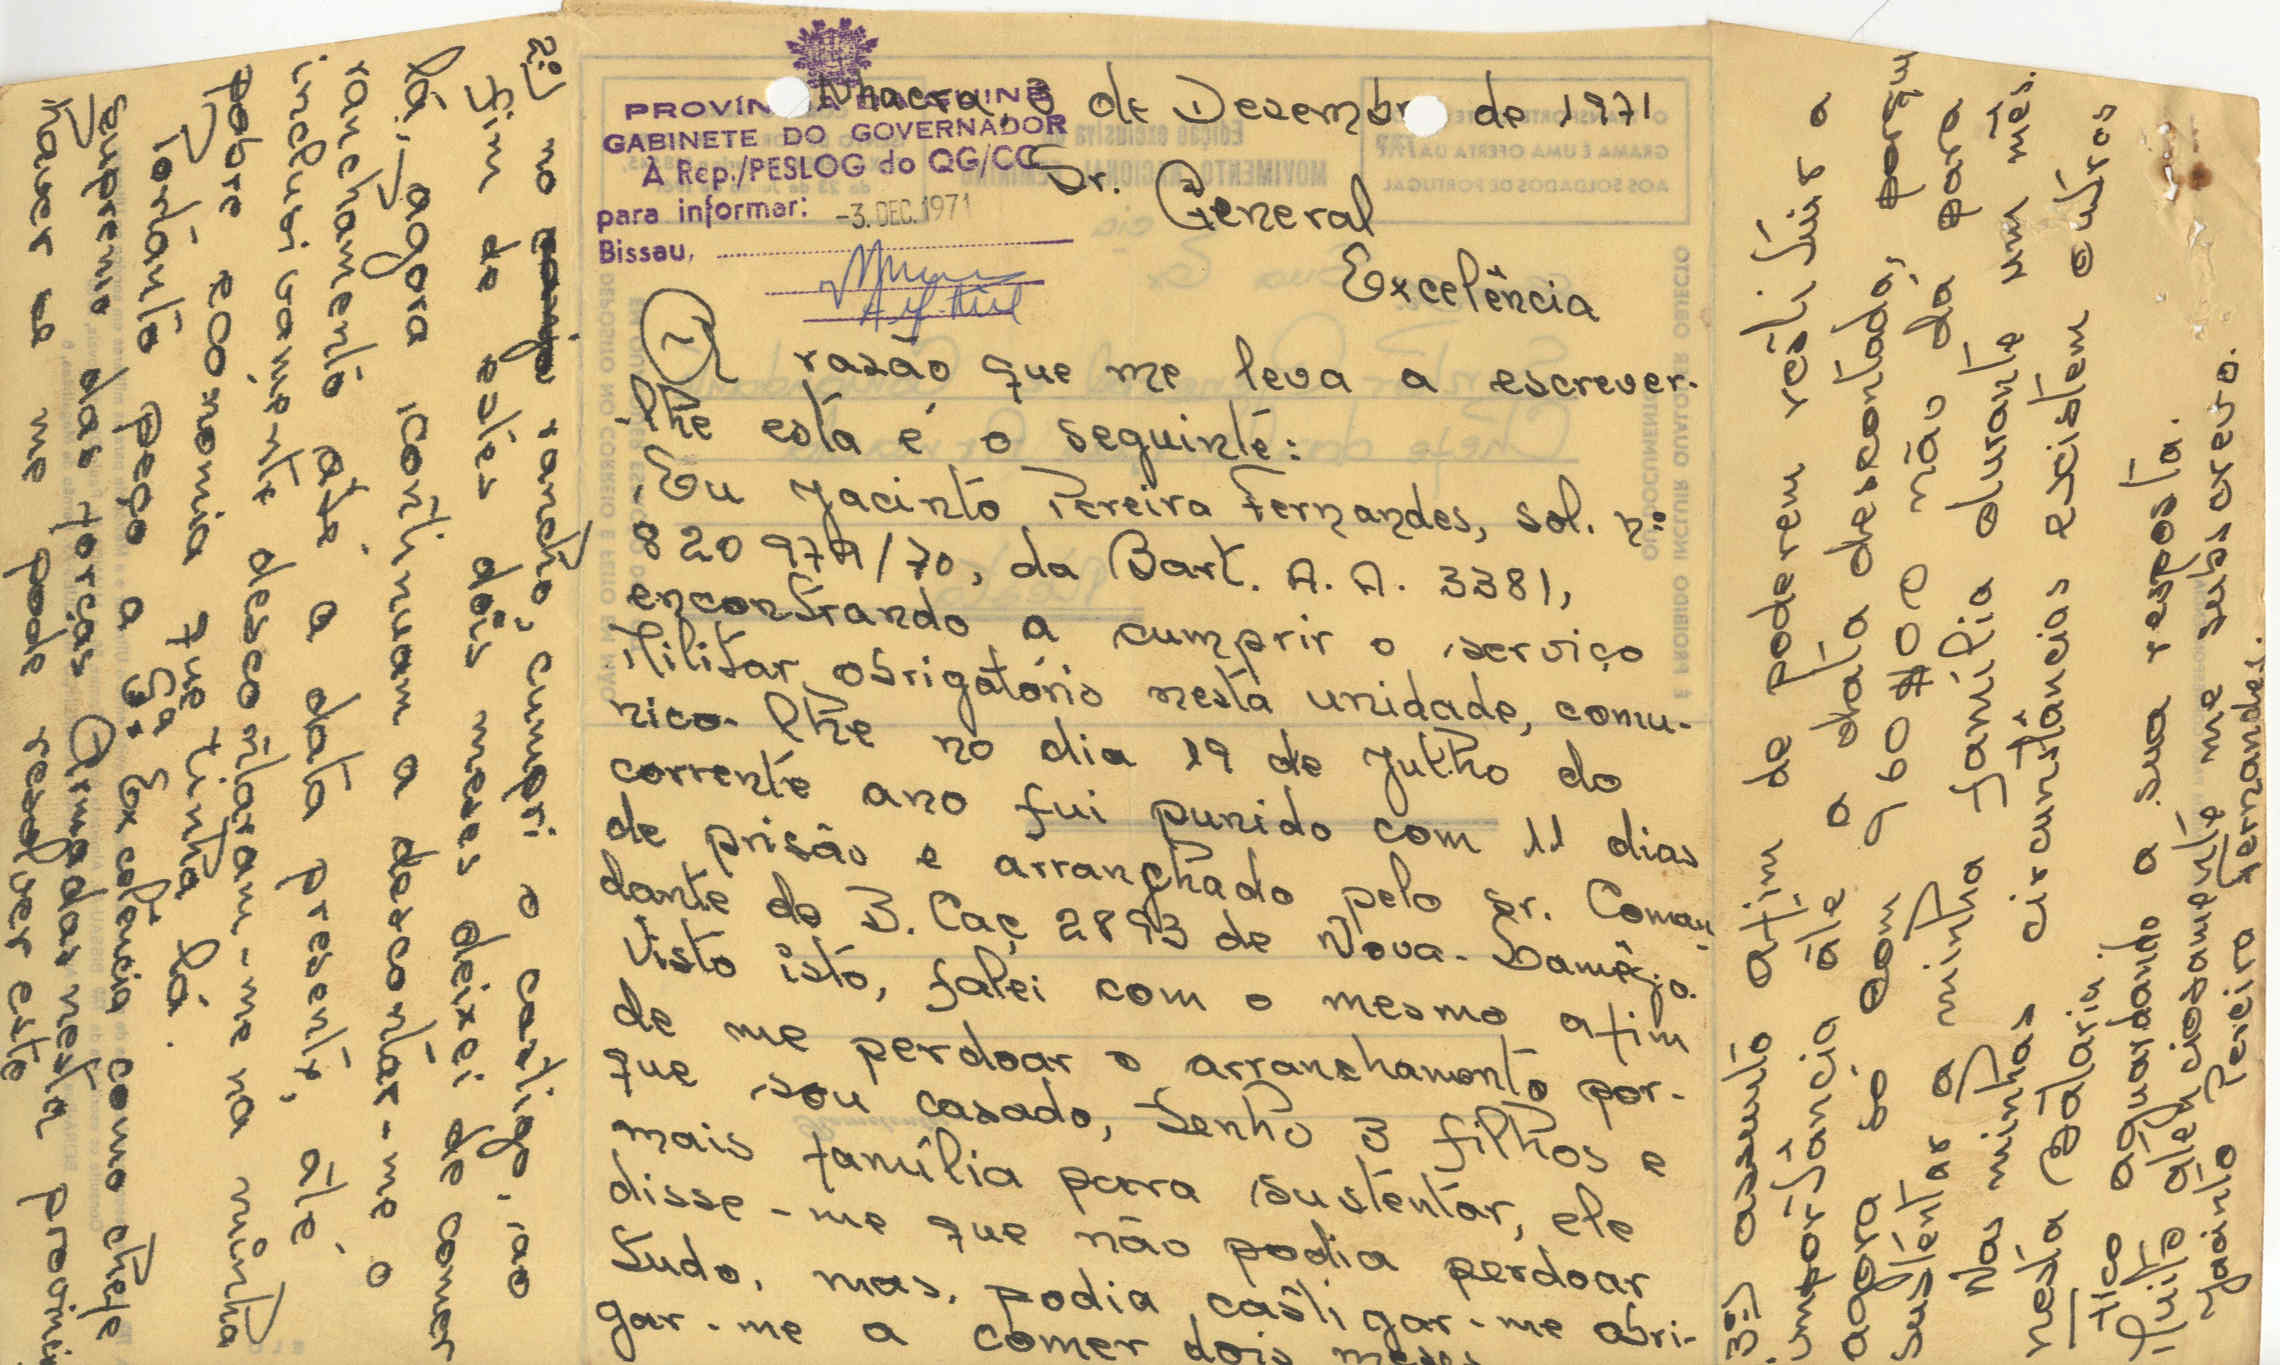 PROVÍNCIA DA GUINÉ
GABINETE DO GOVERNADOR
À Rep./PESLOG do QG/CC
para informar: -3. DEC. 1971
Bissau,
Nhacra, 3 de Dezembro de 1971
Sr. General
Excelência
A razão que me leva a escrever-
lhe esta é o seguinte:
Eu Jacinto Pereira Fernandes, sol. nº
820974/70, da Bart. A. A. 3381,
encontrando a cumprir o serviço
Militar obrigatório nesta unidade, comu-
nico-lhe no dia 19 de Julho do
corrente ano fui punido com 11 dias
de prisão e arranchado pelo Sr. Coman-
dante do B. Caç 2893 de Nova-Lamêgo.
Visto isto, falei com o mesmo afim
de me perdoar o arranchamento por-
que sou casado, tenho 3 filhos e
mais família para sustentar, ele
disse-me que não podia perdoar
tudo, mas, podia castigar-me obri-
gar-me a comer dois meses
2º) no rancho, cumpri o castigo, ao
fim de estes dois meses deixei de comer
lá, agora continuam a descontar-me o
ranchamento até a data presente, até
inclusivamente descontaram-me na minha
pobre economia que tinha lá.
Portanto peço a Sª Excelência como chefe
supremo das forças Armadas nesta provin
haver se me pode resolver este
3º) assunto afim de poderem restituir a
importância até a data descontada, porque
agora só com 960#00 não dá para
sustentar a minha família durante um mês.
Nas minhas circunstâncias existem outros
nesta Bataria.
fico aguardando a sua resposta.
Muito atenciosamente me subscrevo.
Jacinto Pereira Fernandes.